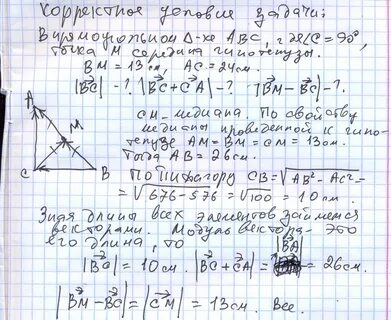 Корректное условие задачи:
В прямоугольном Δ-ке ABC, где ∠C = 90°,
точка M середина гипотенузы.
BM = 13 см, AC = 24 см.
|BC| - ? |BC + CA| - ? |BM - BC| - ?
A
M
C
B
CM - медиана. По свойству
медианы проведённой к гипо-
тенузе AM = BM = CM = 13 см.
Тогда AB = 26 см.
По Пифагору CB = √AB² - AC² =
= √676 - 576 = √100 = 10 см.
Зная длины всех элементов займемся
векторами. Модуль вектора - это
его длина, то
|BC| = 10 см. |BC + CA| = |BA| = 26 см.
|BM - BC| = |CM| = 13 см. Все.